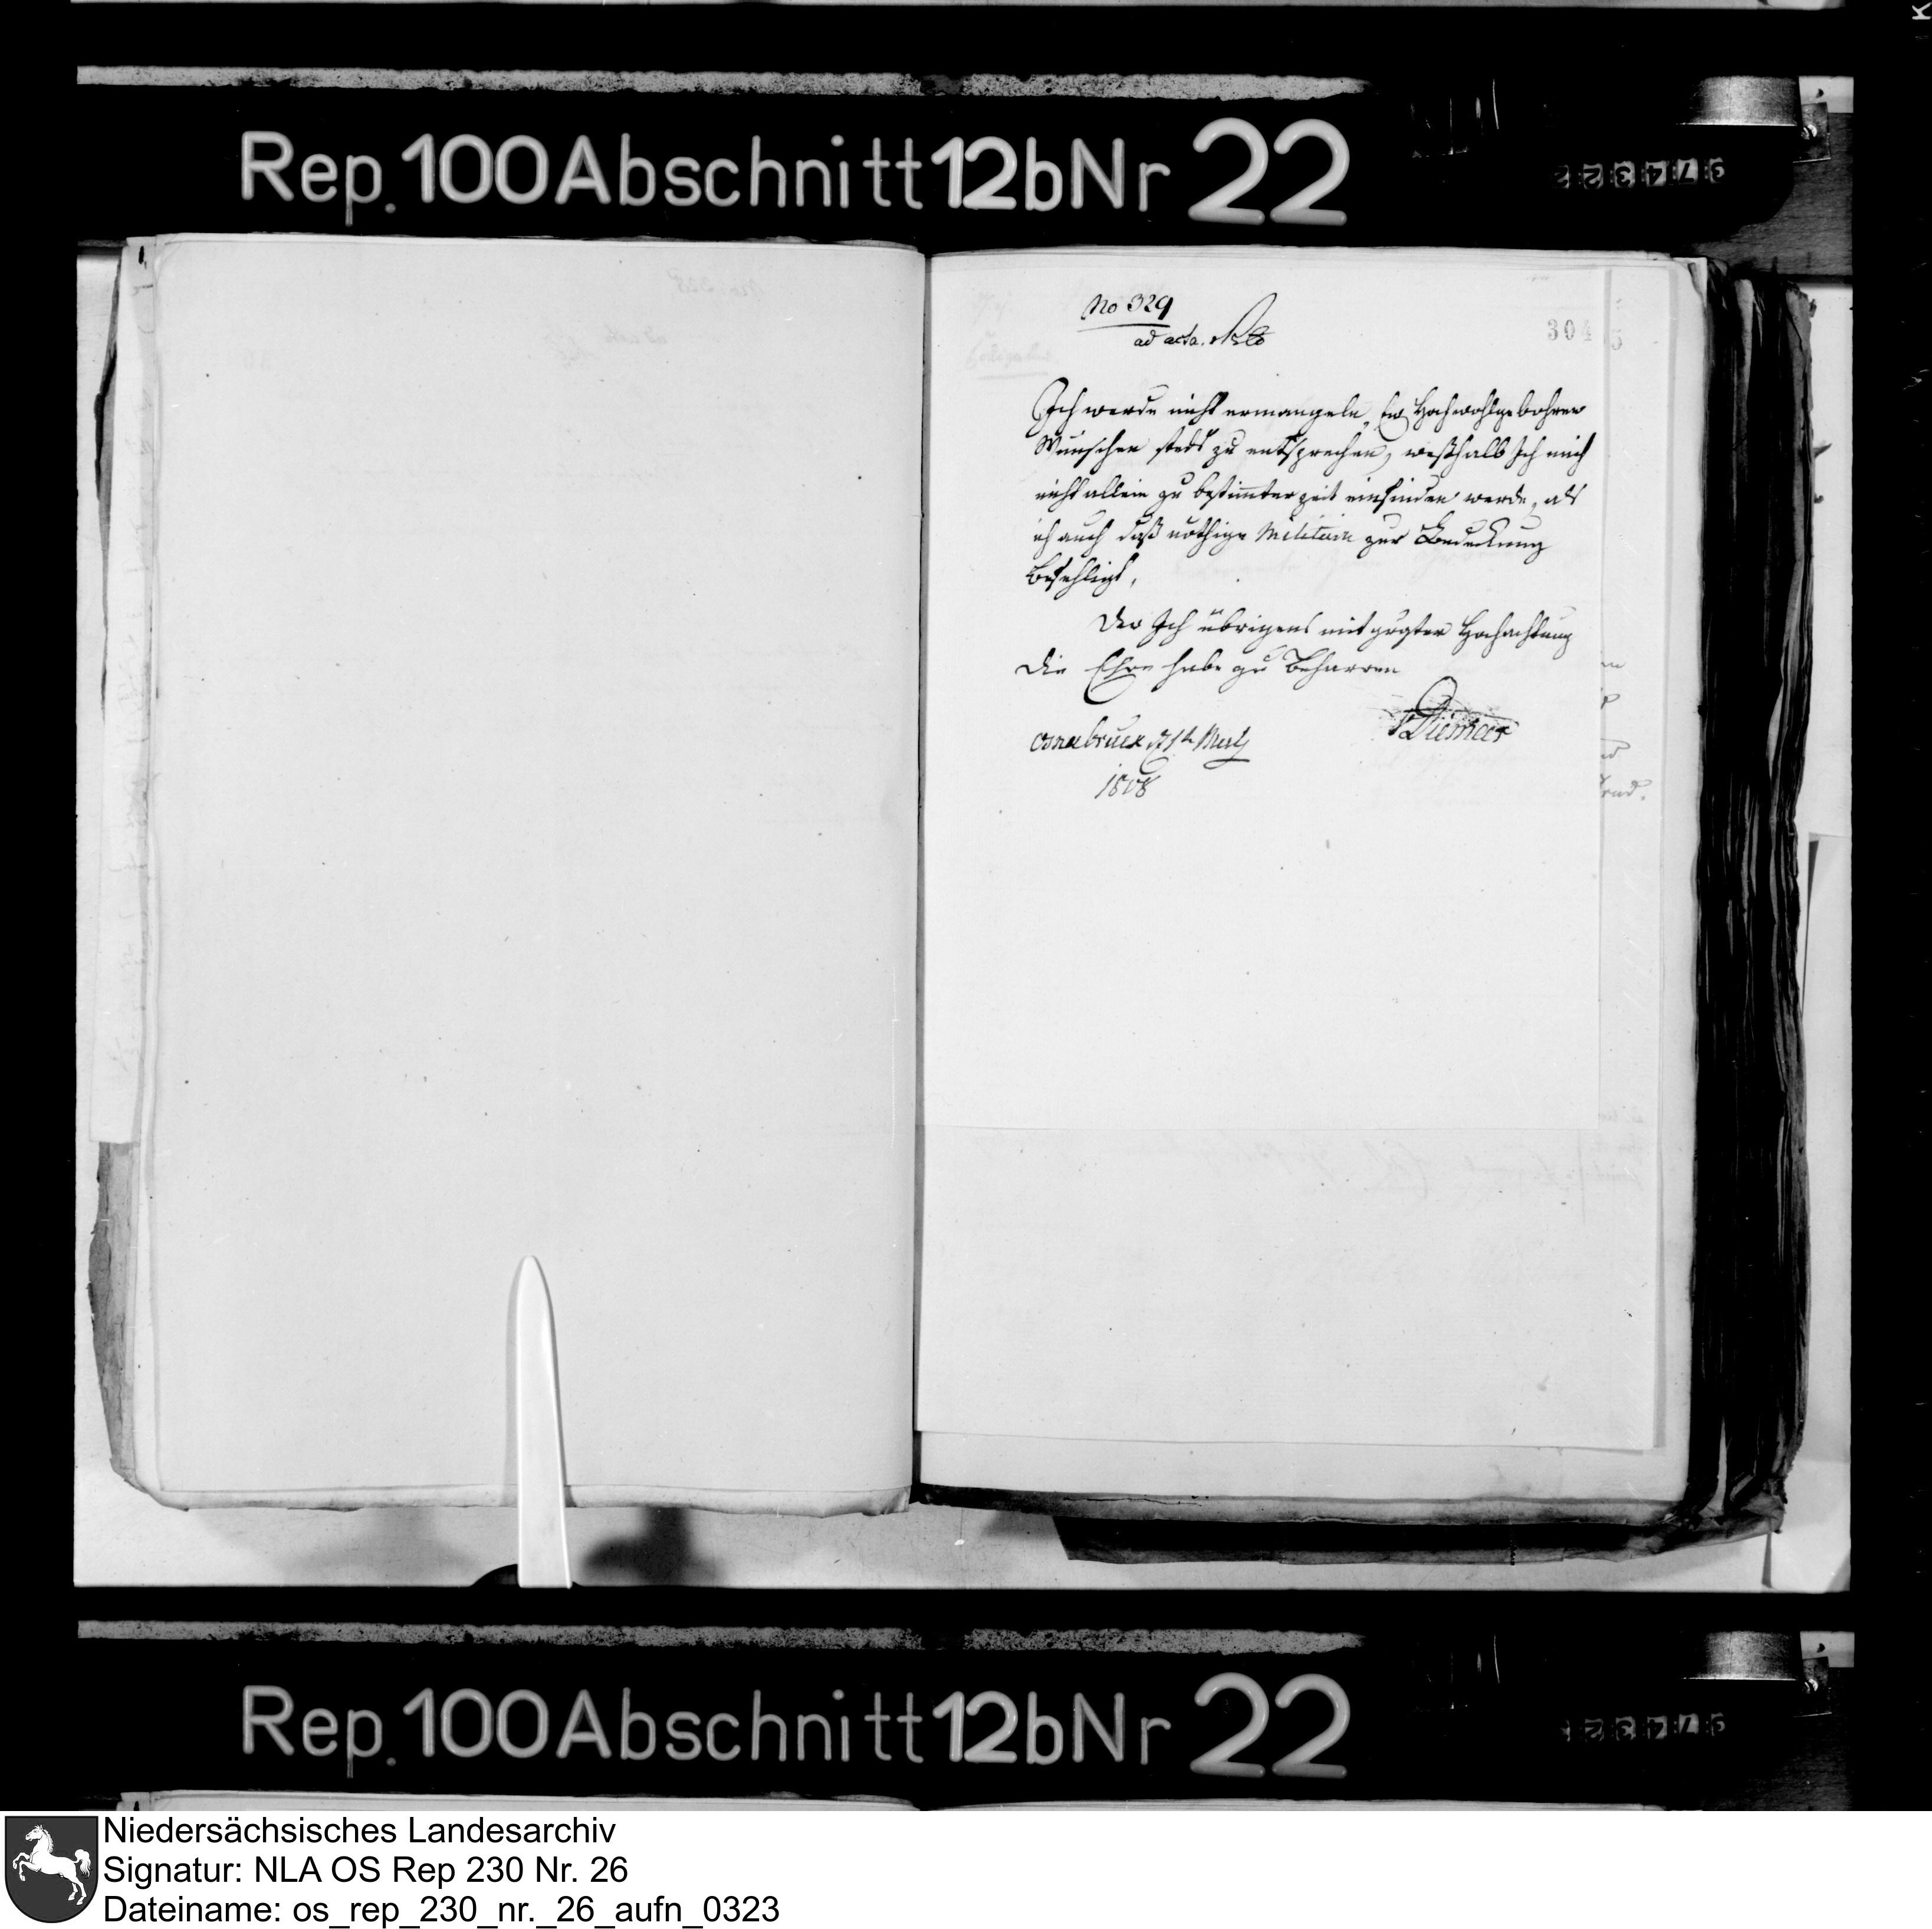 Rep. 100 Abschnitt 12b Nr 22
No 329
ad acta.
304
5
Ich werde nicht ermangeln, Ew Hochwohlgebohren
Wünschen stets zu entsprechen, weßhalb Ich mich
nicht allein zu bestimter zeit einfinden werde, als
ich auch daß nöthige Militair zur Bedeckung
befehligt,
Der Ich übrigens mit Hochachtung
die Ehre habe zu Beharren
Osnabrück
Diemar
1808
Rep. 100 Abschnitt 12b Nr 22
Niedersächsisches Landesarchiv
Signatur: NLA OS Rep 230 Nr. 26
Dateiname: os_rep_230_nr._26_aufn_0323